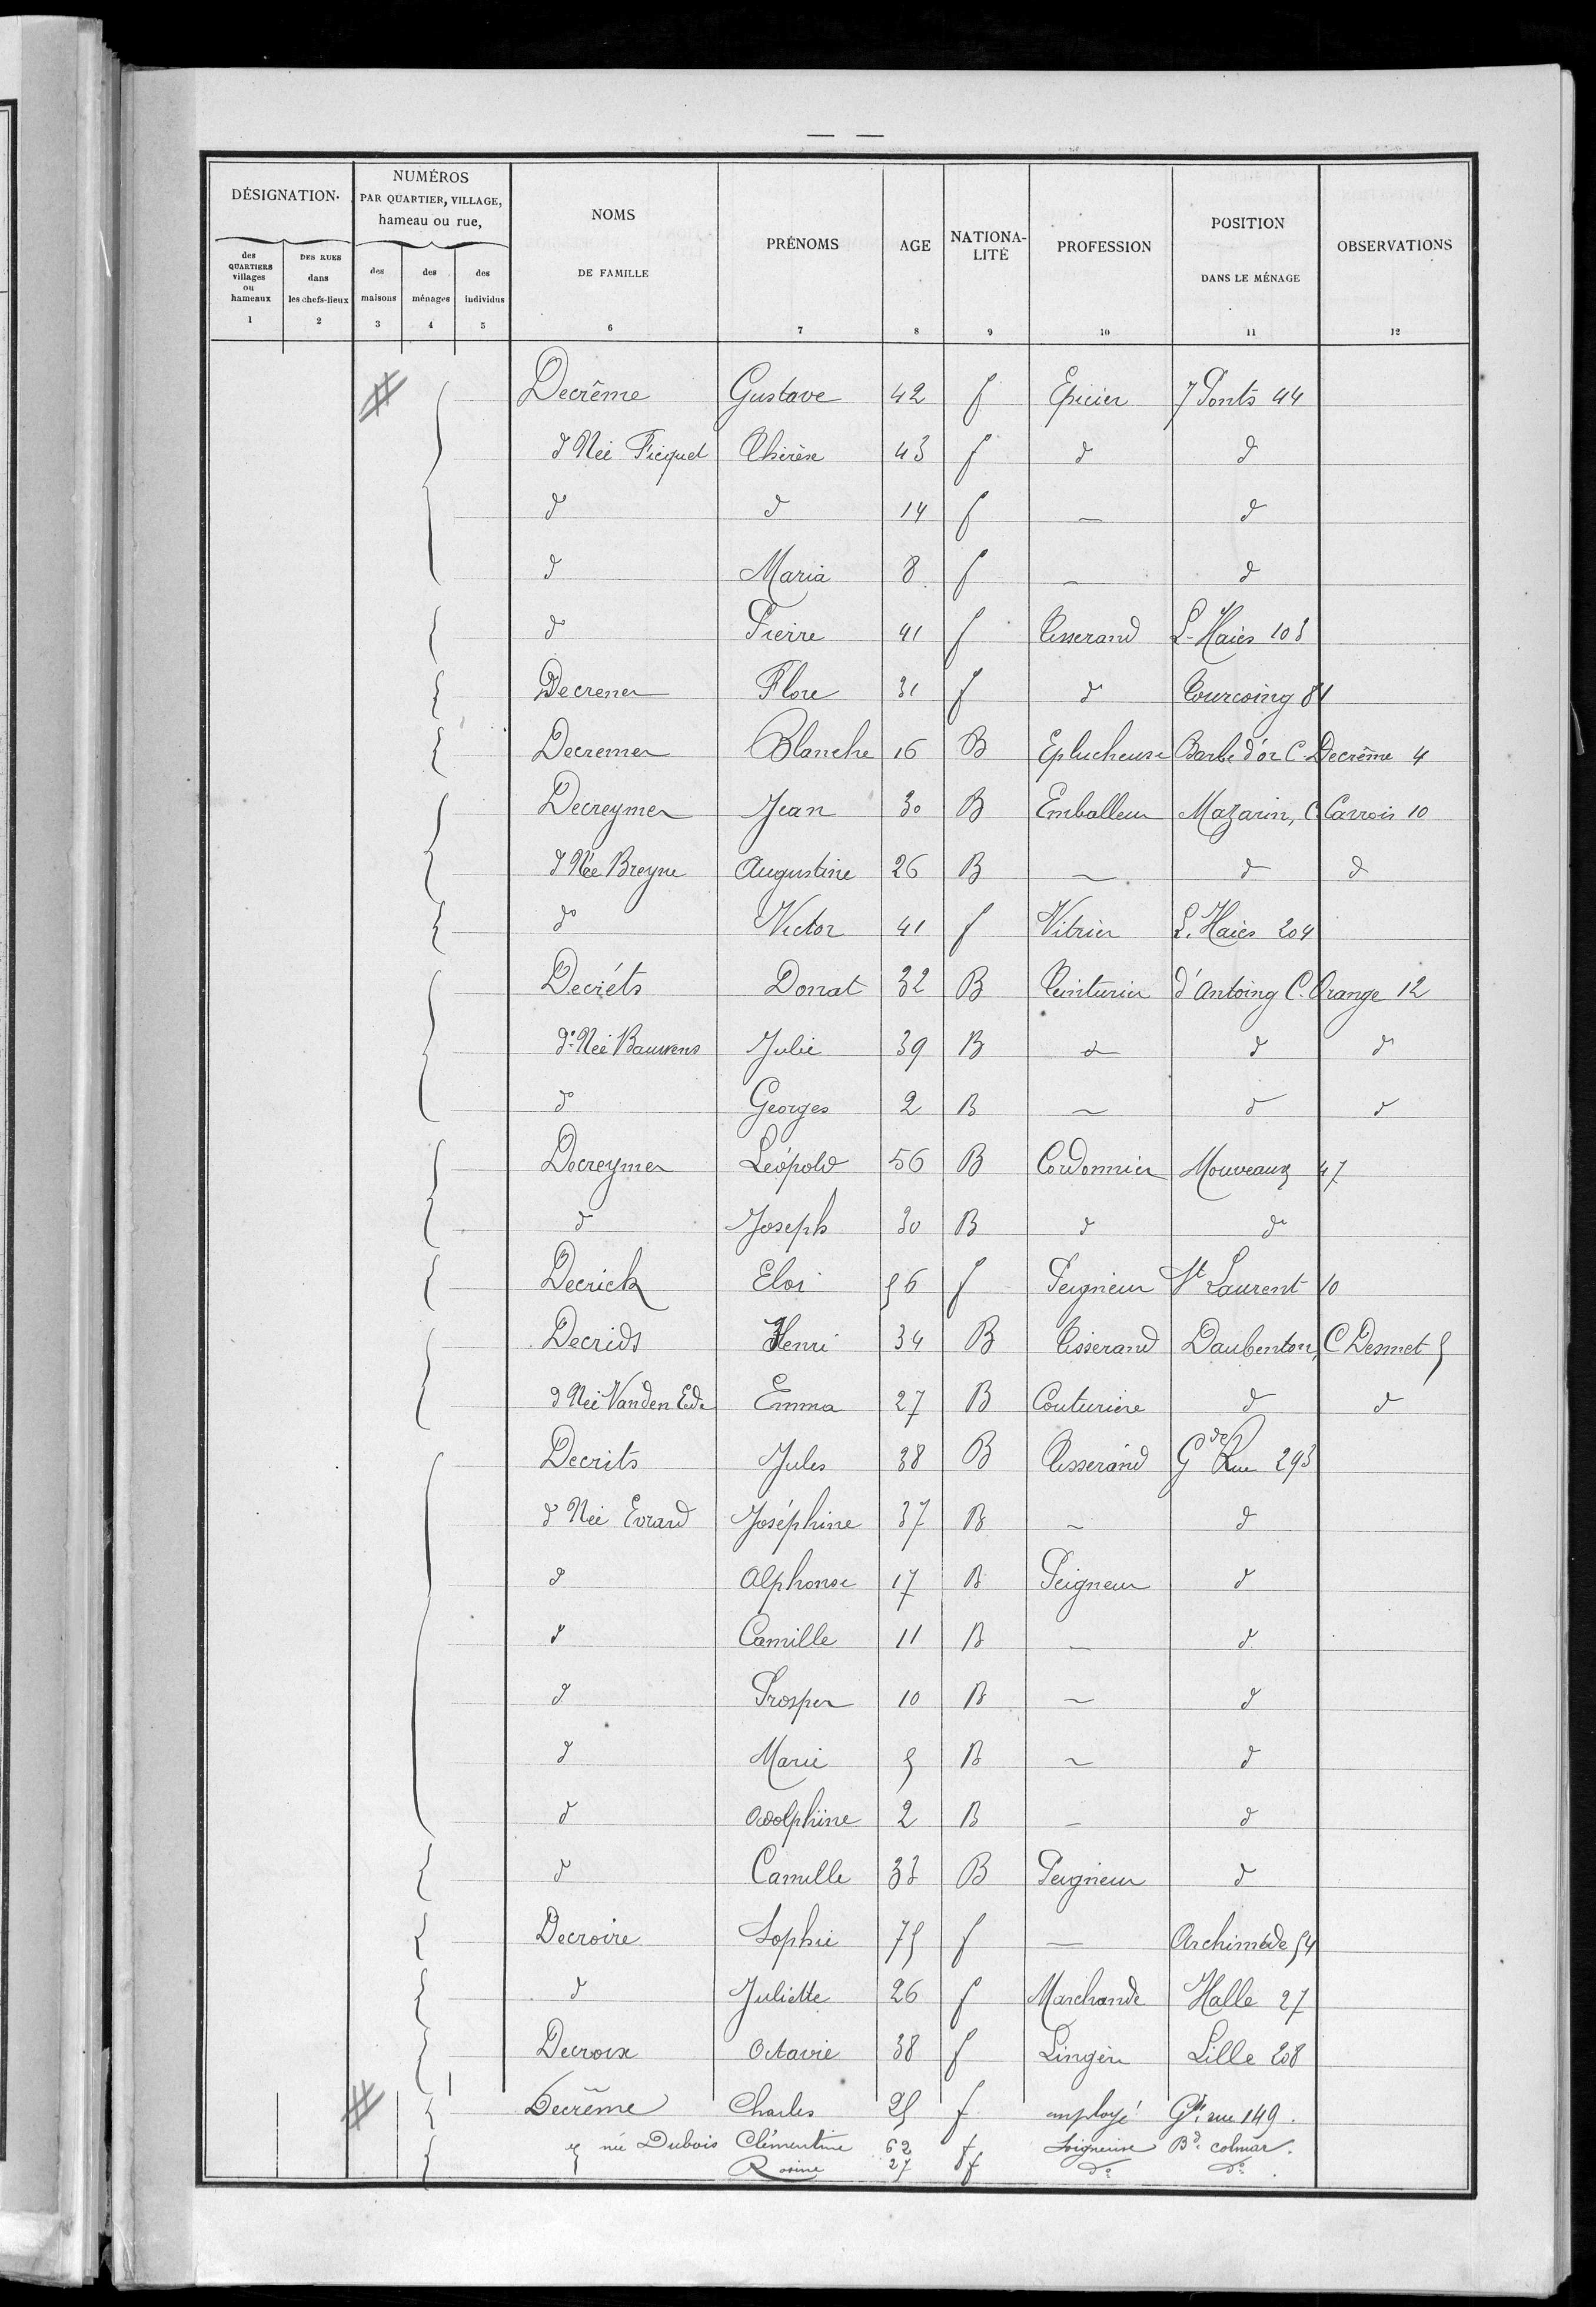 — —
DÉSIGNATION.
NUMÉROS
PAR QUARTIER, VILLAGE,
hameau ou rue,
NOMS
DE FAMILLE
PRÉNOMS
AGE
NATIONA-
LITÉ
PROFESSION
POSITION
DANS LE MÉNAGE
OBSERVATIONS
des
QUARTIERS
villages
ou
hameaux
DES RUES
dans
les chefs-lieux
des
maisons
des
ménages
des
individus
1 2 3 4 5 6 7 8 9 10 11 12
Decrême Gustave 42 f Epicier 7 Ponts 44
d Née Ficquet Thérèse 43 f d d
d d 14 f — d
d Maria 8 f — d
d° Pierre 41 f Tisserand L. Haies 103
Decremer Flore 31 f d Tourcoing 81
Decremer Blanche 16 B Eplucheuse Barbe d'or C. Decrême 4
Decreymer Jean 30 B Emballeur Mazarin, C. Carrois 10
d Née Breyne Augustine 26 B — d d
d° Victor 41 f Vitrier L. Haies 204
Decréts Donat 32 B Teinturier d'Antoing C. Orange 12
d° Née Bauwens Julie 39 B d d d
d° Georges 2 B — d d
Decreymer Léopold 56 B Cordonnier Mouveaux 47
d Joseph 30 B d d
Decrick Eloi 56 f Peigneur St Laurent 10
Decrids Henri 34 B Tisserand Daubenton, C Desmet 5
d Née Vanden Ede Emma 27 B Couturière d d
Decrits Jules 38 B Tisserand Gde Rue 293
d Née Evrard Joséphine 37 B — d
d Alphonse 17 B Peigneur d
d Camille 11 B — d
d Prosper 10 B — d
d Marie 5 B — d
d Adolphine 2 B — d
d Camille 33 B Peigneur d
Decroire Sophie 75 f — Archimède 54
d Juliette 26 f Marchande Halle 27
Decroix Octavie 38 f Lingère Lille 208
Decrême Charles 25 f employé Gde rue 149.
née Dubois Clémentine 62 f Soigneuse Bd. colmar.
Rosine 27 f d° d°.